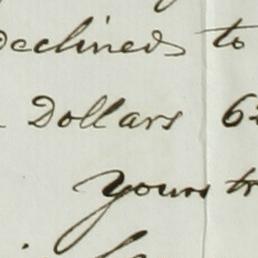 declined to
Dollars 62
Yours tr